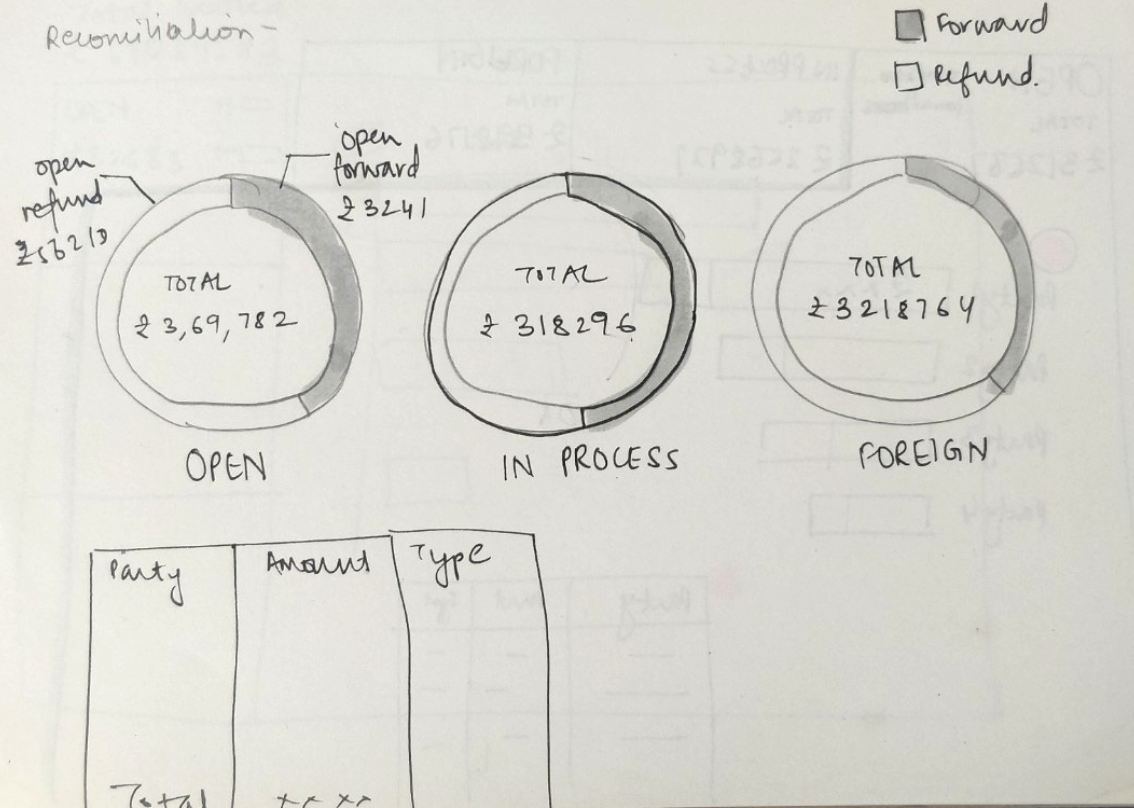 Reconciliation -
Forward
Refund.
open
refund
open
forward
₹3241
TOTAL
₹ 3,69,782
OPEN
TOTAL
₹ 318296
IN PROCESS
TOTAL
₹3218764
FOREIGN
Party Amount Type
Total xx xx